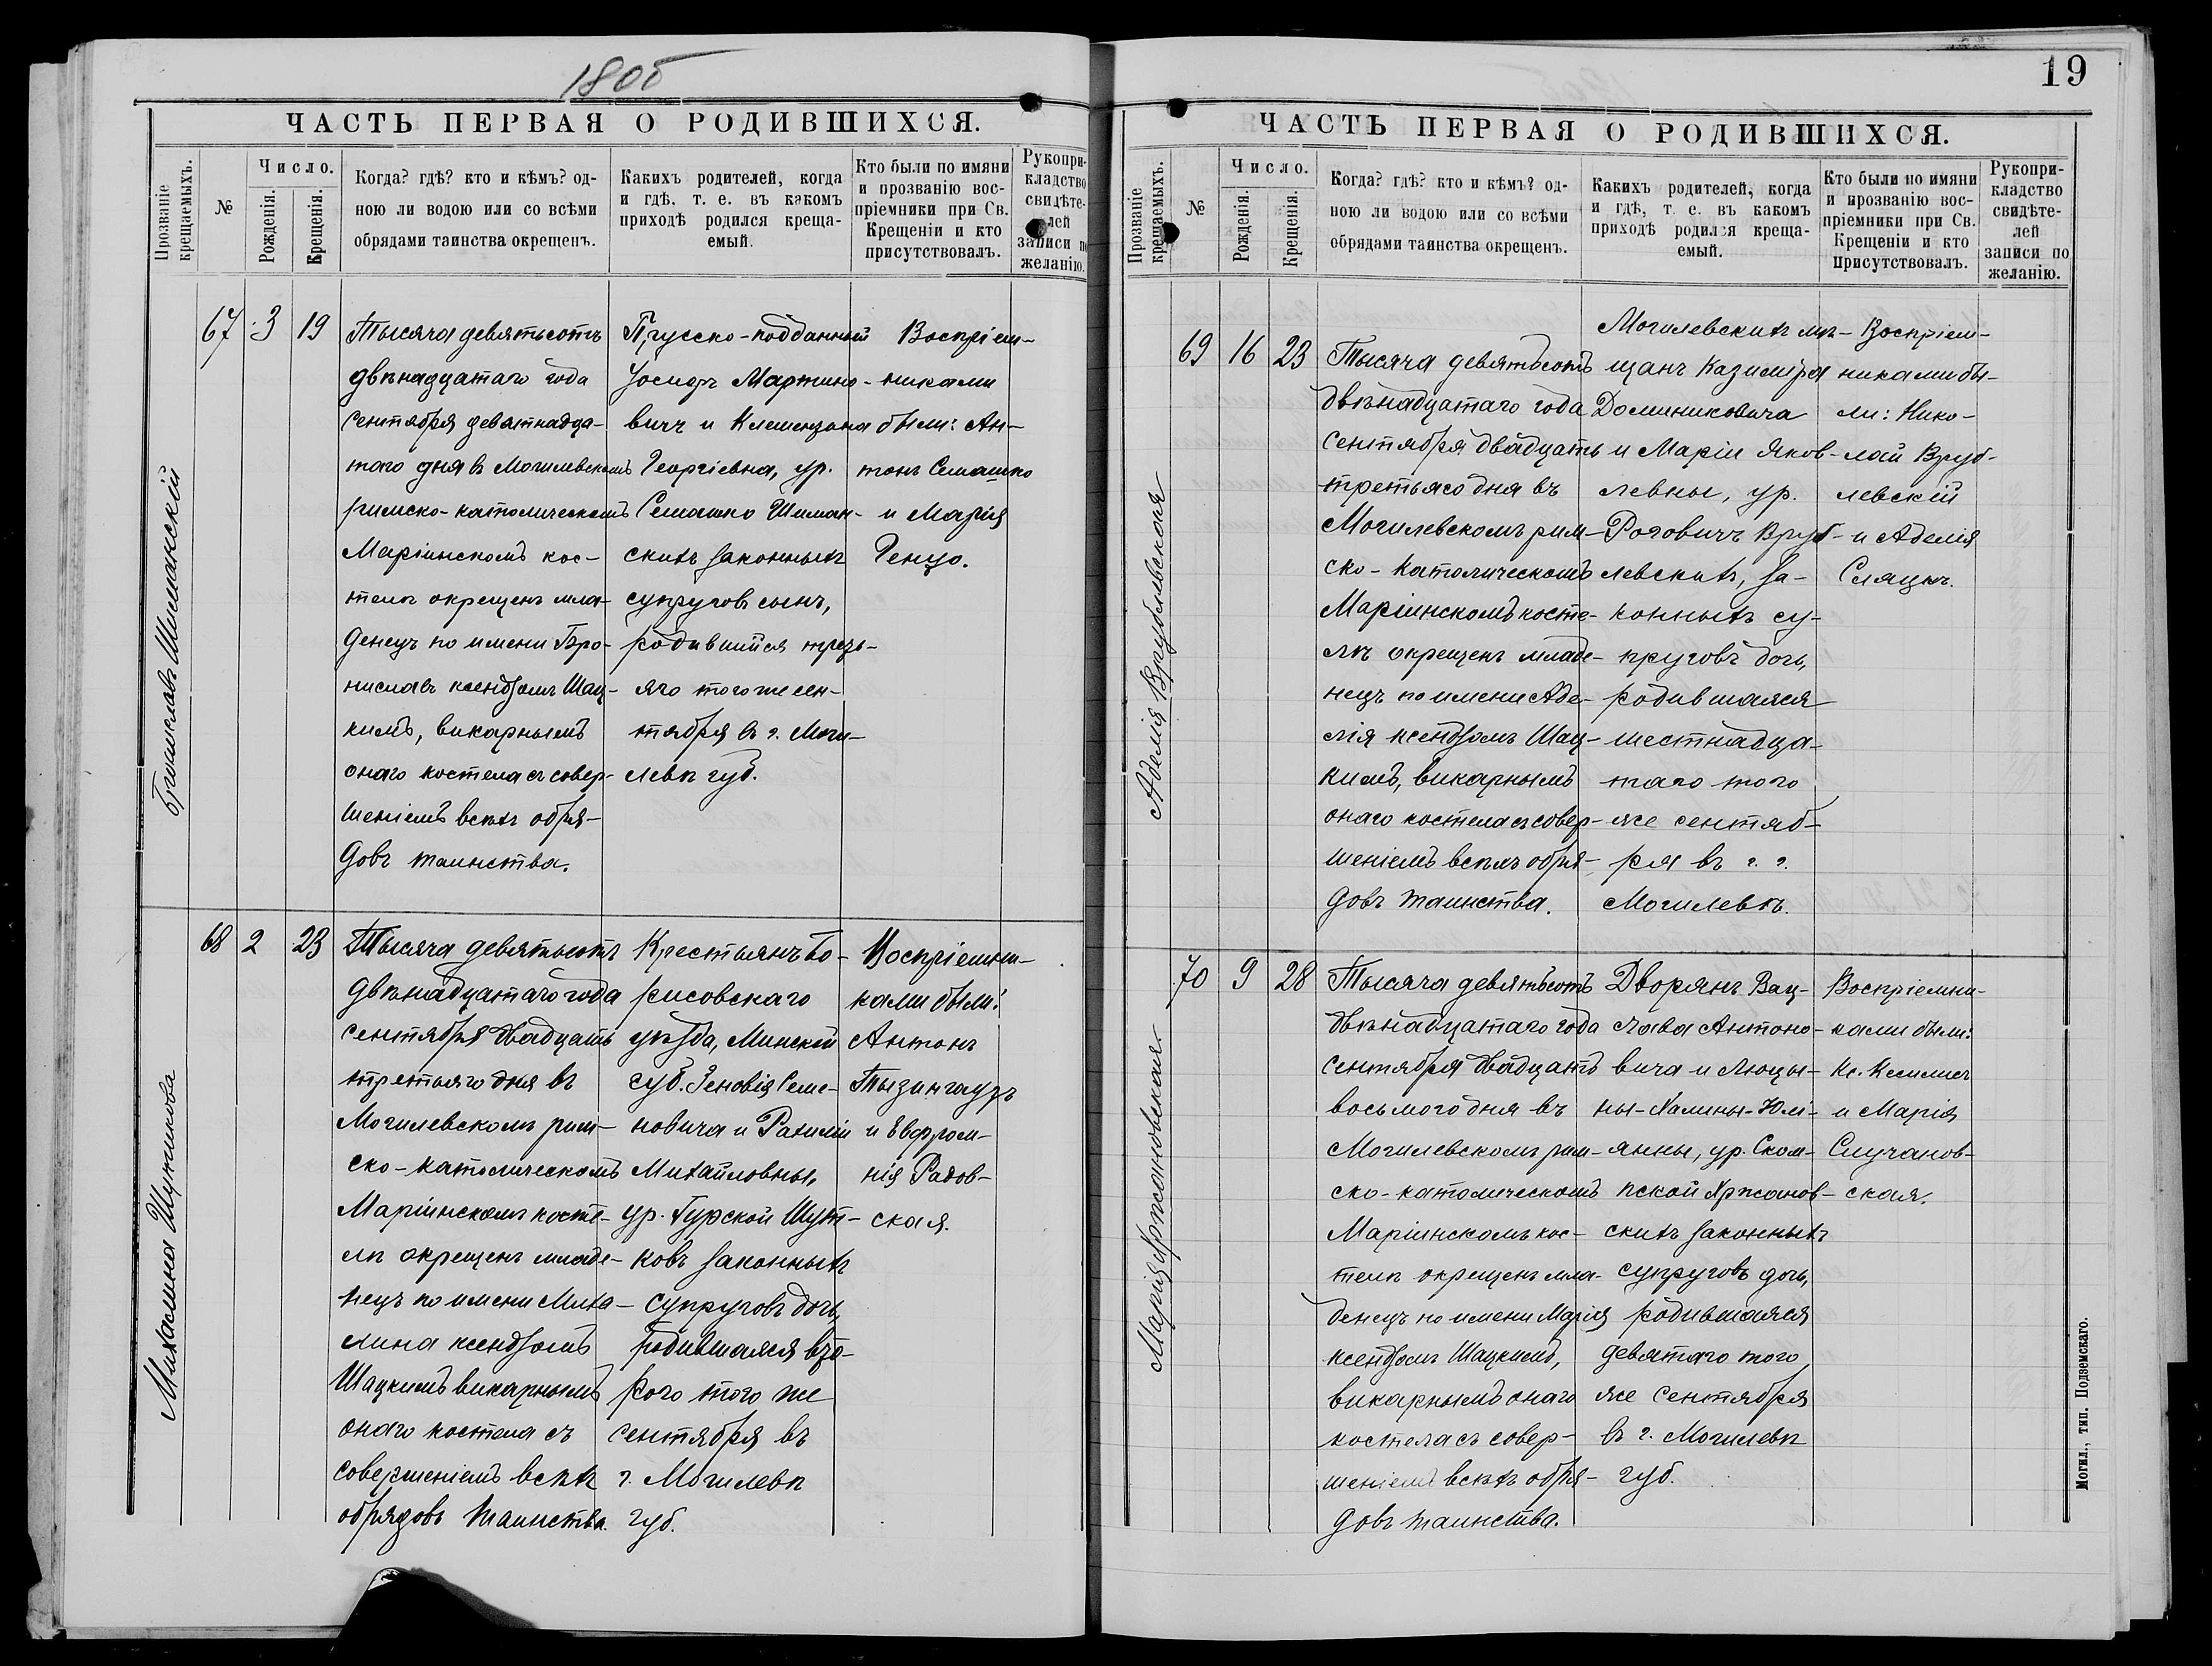 1805
ЧАСТЬ ПЕРВАЯ О РОДИВШИХСЯ.
Прозваніе крещаемыхъ.
№
Число.
Рожденія.
Крещенія.
Когда? гдѣ? кто и кѣмъ? од-
ною ли водою или со всѣми
обрядами таинства окрещенъ.
Какихъ родителей, когда
и гдѣ, т. е. въ какомъ
приходѣ родился креща-
емый.
Кто были по имяни
и прозванію вос-
пріемники при Св.
Крещеніи и кто
присутствовалъ.
Рукопри-
кладство
свидѣте-
лей
записи по
желанію.
Брониславъ Шиманскій
67 3 19
Тысяча девятьсотъ
двѣнадцатаго года
сентября девятнадца-
таго дня въ Могилевскомъ
римско-католическомъ
Маріинскомъ кос-
телѣ окрещенъ мла-
денецъ по имени Бро-
ниславъ ксендзомъ Шац-
кимъ, викарнымъ
онаго костела съ совер-
шеніемъ всѣхъ обря-
довъ таинства.
Прусско-подданный
Іосифъ Мартино-
вичъ и Клемензона
Георгіевна, ур.
Семашко Шиман-
скихъ законныхъ
супруговъ сынъ,
родившійся треть-
яго того же сен-
тября въ г. Моги-
левѣ губ.
Воспріем-
никами
были: Ан-
тонъ Семашко
и Марія
Генцо.
Михалина Шутикова
68 2 23
Тысяча девятьсотъ
двѣнадцатаго года
сентября двадцать
третьяго дня въ
Могилевскомъ рим-
ско-католическомъ
Маріинскомъ косте-
лѣ окрещенъ младе-
нецъ по имени Миха-
лина ксендзомъ
Шацкимъ викарнымъ
онаго костела съ
совершеніемъ всѣхъ
обрядовъ таинства.
Крестьянъ Бо-
рисовскаго
уѣзда, Минской
губ. Зеновія Семе-
новича и Рахиліи
Михайловны,
ур. Гурской Шут-
ковъ законныхъ
супруговъ дочь,
родившаяся вто-
рого того же
сентября въ
г. Могилевѣ
губ.
Воспріемни-
ками были:
Антонъ
Тызингаузъ
и Евфроси-
нія Радов-
ская.
19
ЧАСТЬ ПЕРВАЯ О РОДИВШИХСЯ.
Прозваніе крещаемыхъ.
№
Число.
Рожденія.
Крещенія.
Когда? гдѣ? кто и кѣмъ? од-
ною ли водою или со всѣми
обрядами таинства окрещенъ.
Какихъ родителей, когда
и гдѣ, т. е. въ какомъ
приходѣ родился креща-
емый.
Кто были по имяни
и прозванію вос-
пріемники при Св.
Крещеніи и кто
присутствовалъ.
Рукопри-
кладство
свидѣте-
лей
записи по
желанію.
Аделія Врублевская
69 16 23
Тысяча девятьсотъ
двѣнадцатаго года
сентября двадцать
третьяго дня въ
Могилевскомъ рим-
ско-католическомъ
Маріинскомъ косте-
лѣ окрещенъ младе-
нецъ по имени Аде-
лія ксендзомъ Шац-
кимъ, викарнымъ
онаго костела съ совер-
шеніемъ всѣхъ обря-
довъ таинства.
Могилевскихъ мѣ-
щанъ Казиміра
Доминиковича
и Маріи Яков-
левны, ур.
Роговичъ Вруб-
левскихъ, за-
конныхъ су-
пруговъ дочь,
родившаяся
шестнадца-
таго того
же сентяб-
ря въ г. г.
Могилевѣ.
Воспріем-
никами бы-
ли: Нико-
лай Вруб-
левскій
и Аделія
Сляцкъ.
Марія Хржановская.
70 9 28
Тысяча девятьсотъ
двѣнадцатаго года
сентября двадцать
восьмого дня въ
Могилевскомъ рим-
ско-католическомъ
Маріинскомъ кос-
телѣ окрещенъ мла-
денецъ по имени Марія
ксендзомъ Шацкимъ,
викарнымъ онаго
костела съ совер-
шеніемъ всѣхъ обря-
довъ таинства.
Дворянъ Вац-
лава Антоно-
вича и Люцы-
ны-Халины-Юлі-
янны, ур. Ском-
пской Хржанов-
скихъ законныхъ
супруговъ дочь,
родившаяся
девятаго того
же сентября
въ г. Могилевѣ
губ.
Воспріемни-
ками были:
Кс.
и Марія
Случанов-
ская.
Могил., тип. Подземскаго.